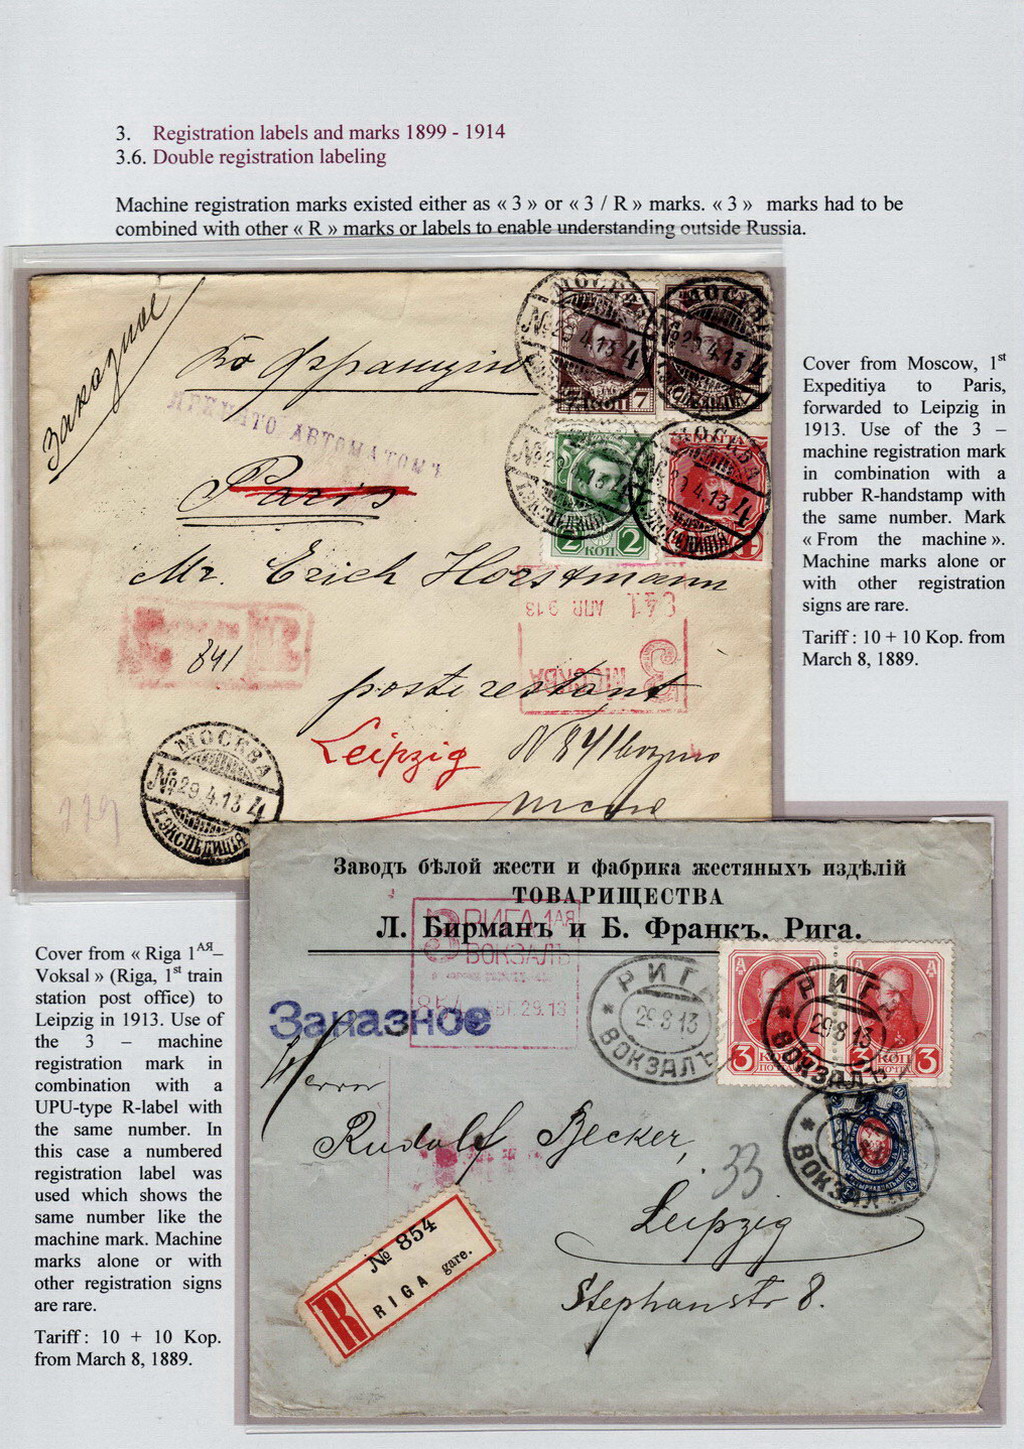 3. Registration labels and marks 1899 - 1914
3.6. Double registration labeling
Machine registration marks existed either as « 3 » or « 3 / R » marks. « 3 » marks had to be
combined with other « R » marks or labels to enable understanding outside Russia.
Заказное
Во Францію
ПРИНЯТО АВТОМАТОМЪ
Paris
Mr. Erich Horstmann
841
poste restant
Leipzig
N 841
МОСКВА
№ 29.4.13 4
1. ЭКСПЕДИЦІЯ
МОСКВА
29.4.13 4
МОСКВА
29.4.13 4
1. ЭКСПЕДИЦІЯ
МОСКВА
4.13 4
7 КОП 7
2 КОП 2
841 АПР. 9 13
З МОСКВА
МОСКВА
№ 29.4.13 4
1. ЭКСПЕДИЦІЯ
Cover from Moscow, 1st
Expeditiya to Paris,
forwarded to Leipzig in
1913. Use of the 3 –
machine registration mark
in combination with a
rubber R-handstamp with
the same number. Mark
« From the machine ».
Machine marks alone or
with other registration
signs are rare.
Tariff : 10 + 10 Kop. from
March 8, 1889.
Cover from « Riga 1АЯ–
Voksal » (Riga, 1st train
station post office) to
Leipzig in 1913. Use of
the 3 – machine
registration mark in
combination with a
UPU-type R-label with
the same number. In
this case a numbered
registration label was
used which shows the
same number like the
machine mark. Machine
marks alone or with
other registration signs
are rare.
Tariff : 10 + 10 Kop.
from March 8, 1889.
Заводъ бѣлой жести и фабрика жестяныхъ издѣлій
ТОВАРИЩЕСТВА
Л. Бирманъ и Б. Франкъ. Рига.
З РИГА 1АЯ
ВОКЗАЛЪ
854 АВГ. 29. 13
Заказное
РИГА
29 8 13
ВОКЗАЛЪ
РИГА
29 8 13
ВОКЗАЛЪ
3 КОП
ПОЧТА
КОП 3
ПОЧТА
ВОКЗАЛЪ
Herrn
Rudolf Becker,
33
Leipzig
Stephanstr 8.
R
№ 854
RIGA gare.